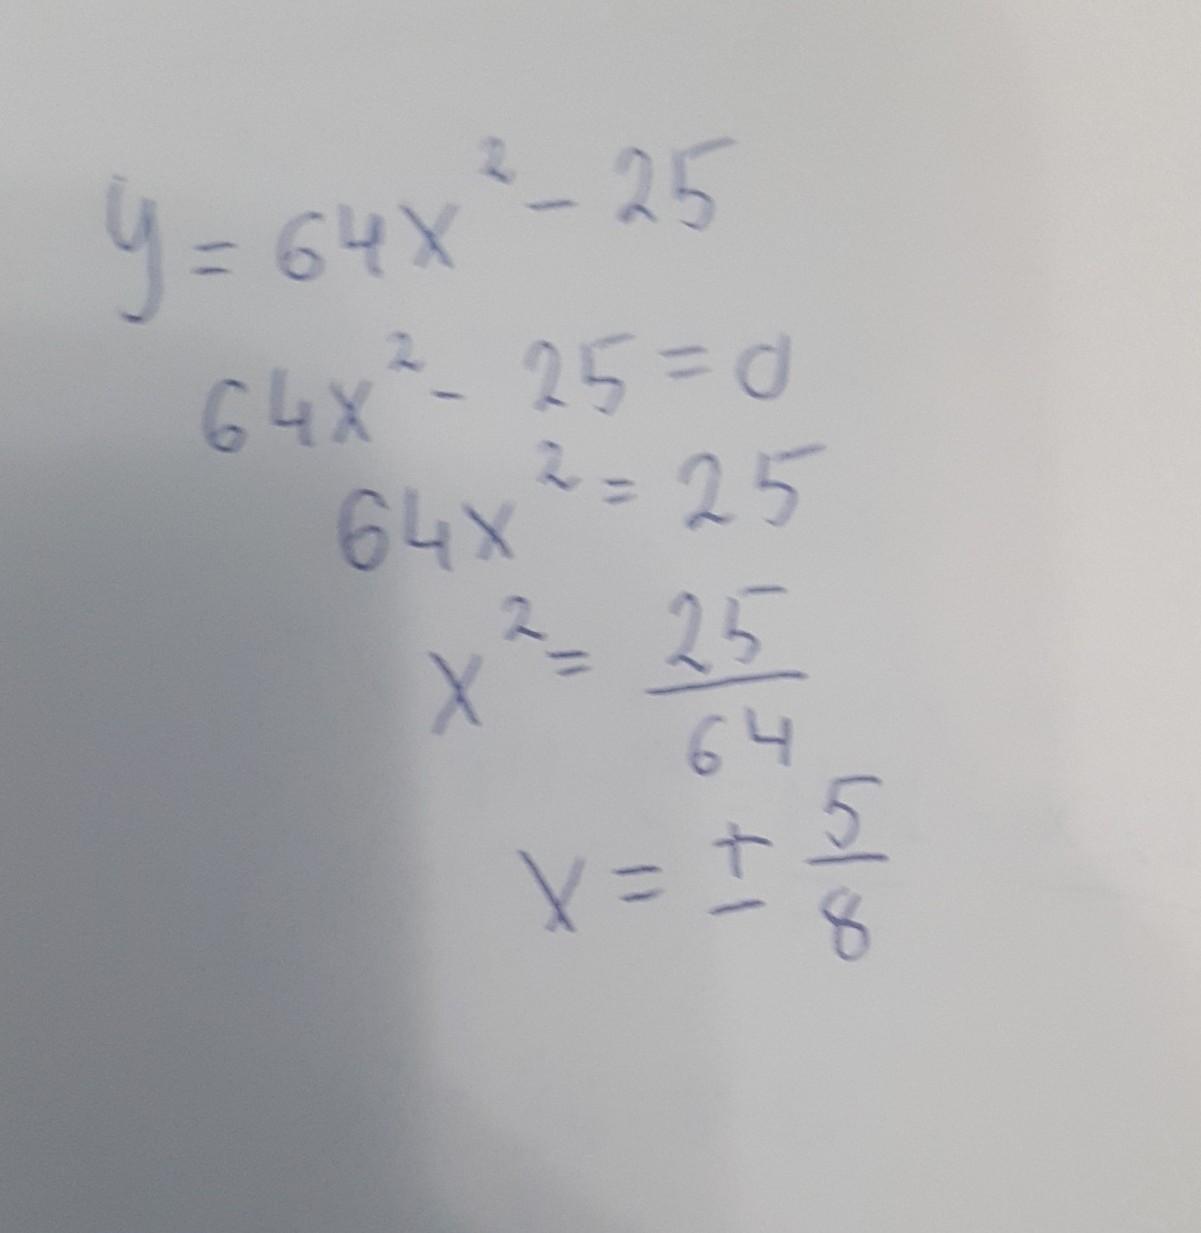 y = 64x² - 25
64x² - 25 = 0
64x² = 25
x² = 25/64
x = ± 5/8